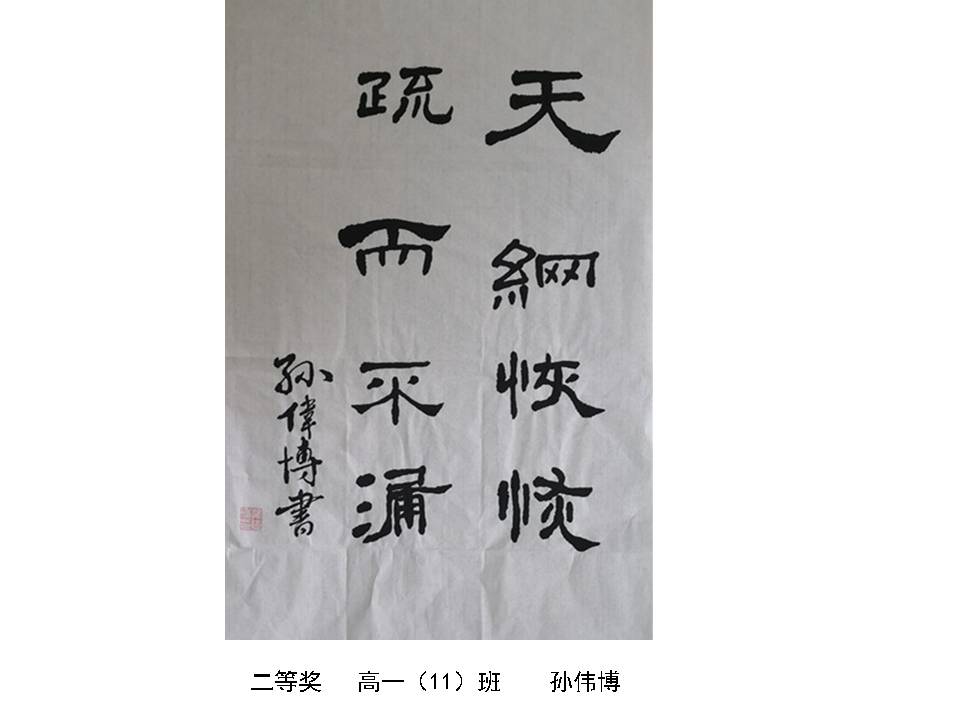 天網恢恢
疏而不漏
孫偉博書
二等奖 高一（11）班 孙伟博